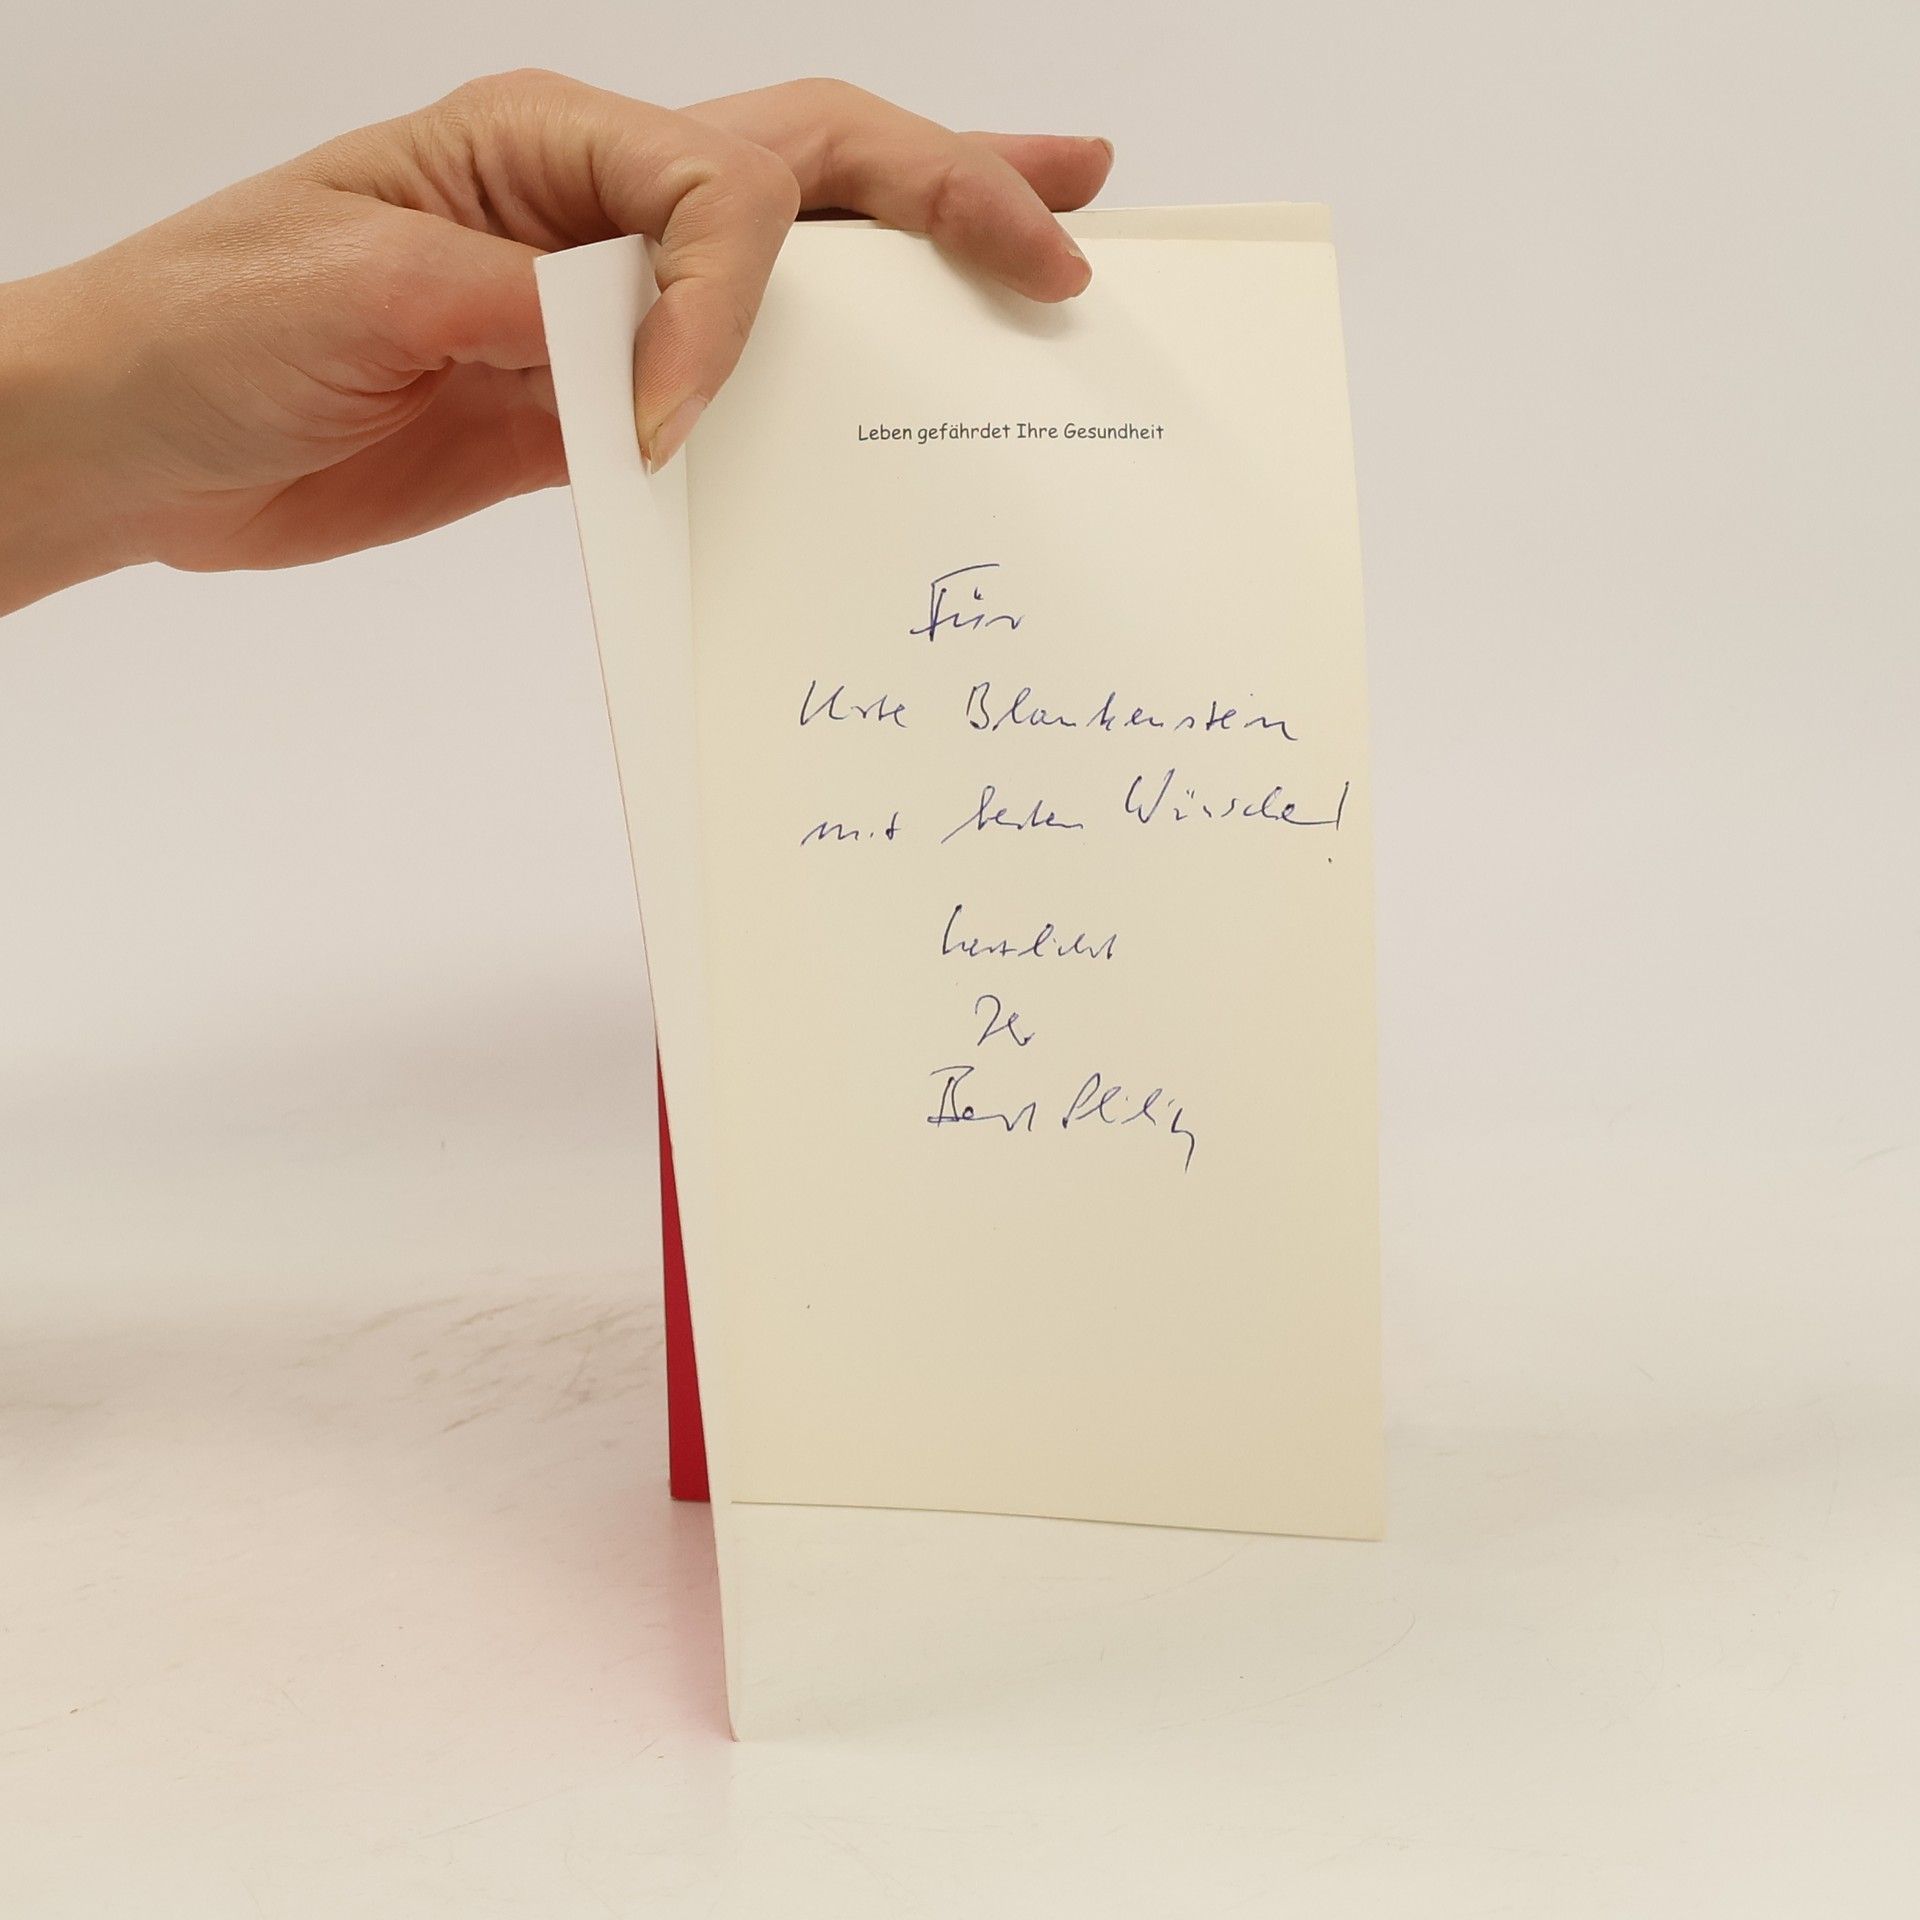 Leben gefährdet Ihre Gesundheit
Für
Urte Blankenstein
mit besten Wünschen!
herzlichst
Ihr